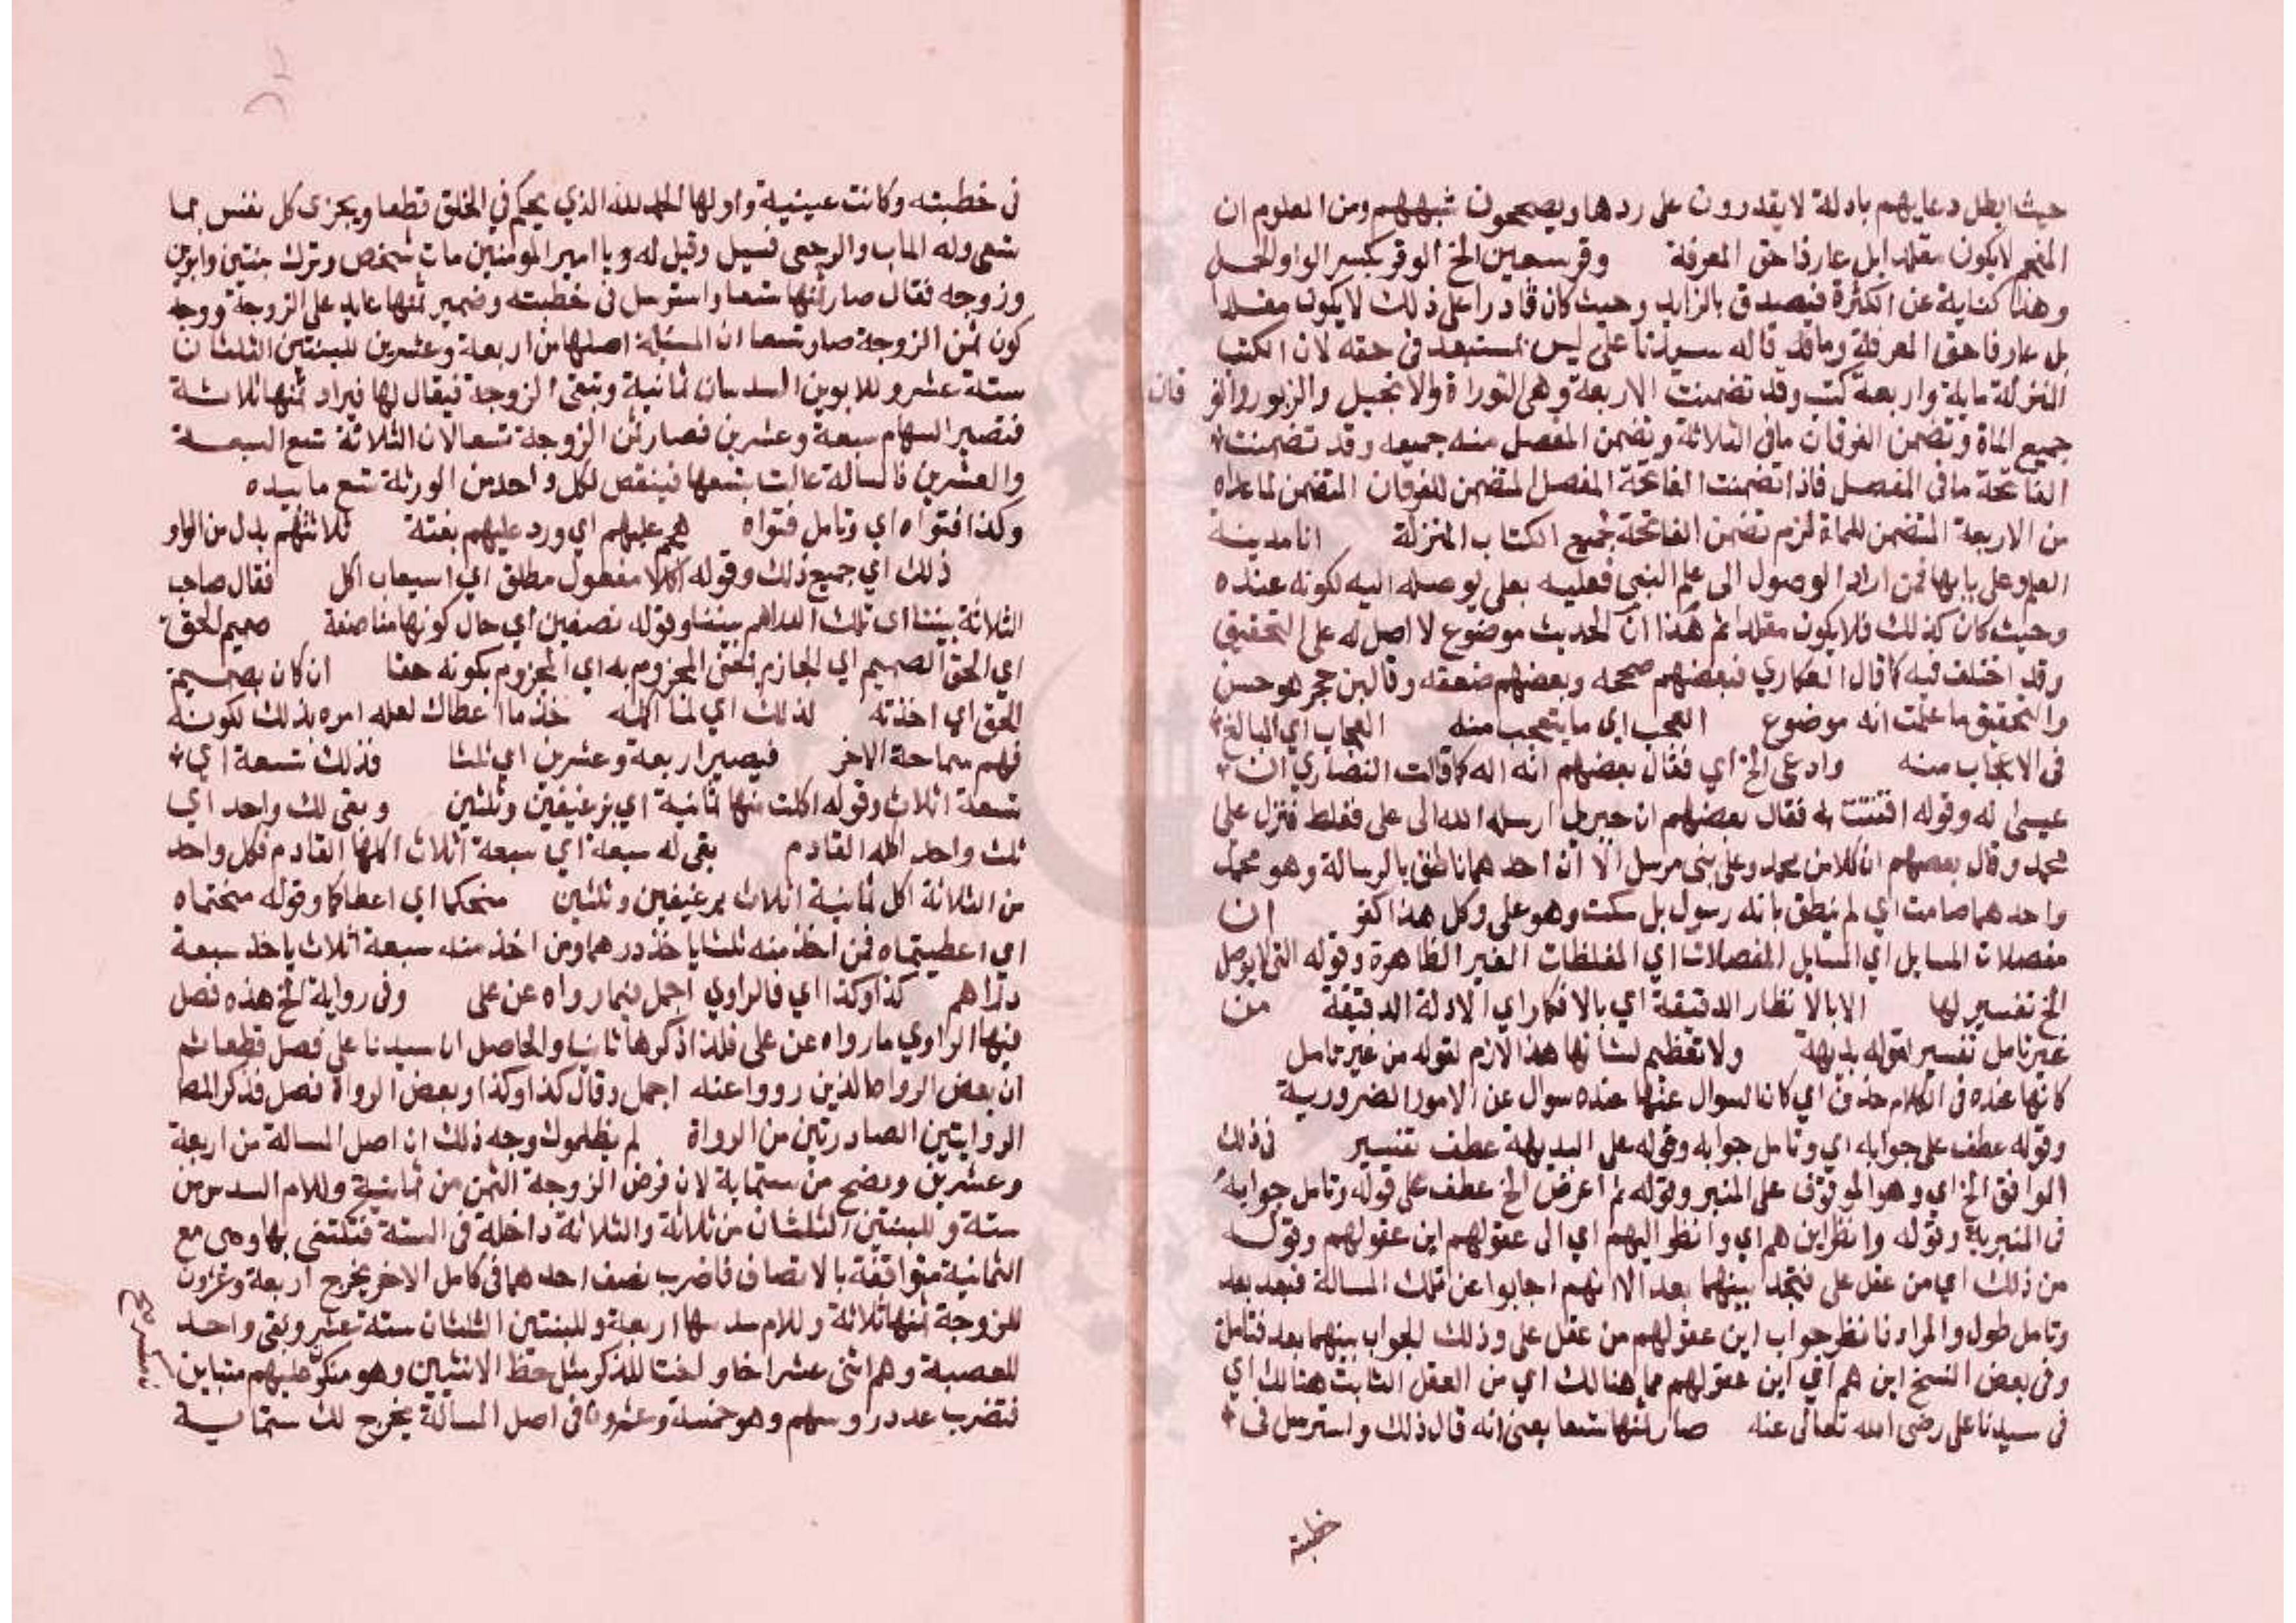 حيث ابطل دعايهم بادلة لا يقدرون على ردها ويصححون شبههم ومن المعلوم ان
المفحم لا يكون مقلدا بل عارفا حق المعرفة وقر سبعين الخ الوقر بكسر الواو الحمل
وهذا كناية عن الكثرة فيصدق بالزايد وحيث كان قادرا على ذلك لا يكون مقلدا
بل عارفا حق المعرفة وما قد قاله سيدنا علي ليس بمستبعد في حقه لان الكتب
المنزلة ماية واربعة كتب وقد تضمنت الاربعة وهي التوراة والانجيل والزبور والفرقان
جميع الماة وتضمن الفرقان ما في الثلاثة وتضمن المفصل منه جميعه وقد تضمنت
الفاتحة ما في المفصل فاذا تضمنت الفاتحة المفصل المتضمن للفرقان المتضمن لما عداه
من الاربعة المتضمن للماة لزم تضمن الفاتحة لجميع الكتاب المنزلة انا مدينة
العلم وعلي بابها فمن اراد الوصول الى علم النبي فعليه بعلي يوصله اليه لكونه عنده
وحيث كان كذلك فلا يكون مقلدا ثم هذا ان الحديث موضوع لا اصل له على التحقيق
وقد اختلف فيه كما قال العكاري فبعضهم صححه وبعضهم ضعفه وقال ابن حجر هو حسن
والتحقيق ما علمت انه موضوع العجب اي ما يتعجب منه العجاب اي البالغ
في الاعجاب منه وادعى الخ اي فقال بعضهم انه اله كما قالت النصاري ان
عيسى اله وقوله افتتنت به فقال بعضهم ان جبريل ارسله الله الى علي فغلط فنزل على
محمد وقال بعضهم ان كلا من محمد وعلي نبي مرسل الا ان احدهما ناطق بالرسالة وهو محمد
واحدهما صامت اي لم ينطق بانه رسول بل سكت وهو علي وكل هذا كفر ان
معضلات المسايل اي المسايل المعضلات اي المغلظات الغير الظاهرة وقوله التي لا يوصل
الخ تفسير لها الا بالانظار الدقيقة اي بالافكار اي الادلة الدقيقة من
غير تامل تفسير لقوله بديهة ولا تعظيم لشانها هذا لازم لقوله من غير تامل
كانها عنده في الكلام حذف اي كان السوال عنها عنده سوال عن الامور الضرورية
وقوله عطف على جوابه اي وتامل جوابه وقوله على البديهة عطف تفسير في ذلك
الموافق الخ اي وهو الموقوف على المنبر وقوله ثم اعرض الخ عطف على قوله وتامل جوابه
في المنبرية وقوله وانظر اين هم اي وانظر اليهم اي الى عقولهم اين عقولهم وقوله
من ذلك اي من عقل علي فتجد بينهما بعد الا انهم اجابوا عن تلك المسالة فبعد بعد
وتامل طول والمراد فانظر جواب اين عقولهم من عقل علي وذلك الجواب بينهما بعد فتامل
وفي بعض النسخ اين هم اي اين عقولهم مما هنالك اي من العقل الثابت هنالك اي
في سيدنا علي رضي الله تعالى عنه صار ثمنها تسعا يعني انه قال ذلك واسترسل في
خطبته
في خطبته وكانت عينية واولها الحمد لله الذي يحكم في الخلق قطعا ويجزى كل نفس بما
تسعى وله الماب والرجعى فسيل وقيل له ويا امير المومنين مات شخص وترك بنتين وابوين
وزوجه فقال صار ثمنها تسعا واسترسل في خطبته وضمير ثمنها عايد على الزوجة ووجه
كون ثمن الزوجة صار تسعا ان المسئلة اصلها من اربعة وعشرين للبنتين الثلثان
ستة عشر وللابوين السدسان ثمانية وتبقى الزوجة فيعال لها فيزاد ثمنها ثلاثة
فتصير السهام سبعة وعشرين فصار ثمن الزوجة تسعا لان الثلاثة تسع السبعة
والعشرين فالمسالة عالت بتسعها فينقص لكل واحد من الورثة تسع ما بيده
وكذا فتواه اي وتامل فتواه هجم عليهم اي ورد عليهم بغتة ثلاثتهم بدل من الواو
ذلك اي جميع ذلك وقوله اكلا مفعول مطلق اي استيعاب اكل فقال صاحب
الثلاثة بيننا اي تلك الدراهم بيننا وقوله نصفين اي حال كونها مناصفة صميم الحق
اي الحق الصميم اي الجازم بمعنى المجزوم به اي المجزوم بكونه حقا ان كان بصميم
الحق اي اخذته لذلك اي لما اكله خذ ما اعطاك لعله امره بذلك لكونه
فهم سماحة الاخر فيصير اربعة وعشرين اي ثلثا فذلك تسعة اي
تسعة اثلاث وقوله اكلت منها ثمانية اي برغيفين وثلثين وبقى لك واحد اي
ثلث واحد اكله القادم بقى له سبعة اي سبعة اثلاث اكلها القادم فكل واحد
من الثلاثة اكل ثمانية اثلاث برغيفين وثلثين منحكما اي اعطاكما وقوله منحتماه
اي اعطيتماه فمن اخذ منه ثلثا ياخذ درهما ومن اخذ منه سبعة اثلاث ياخذ سبعة
دراهم كذا وكذا اي فالراوي اجمل فيما رواه عن علي وفي رواية الخ هذه فصل
فيها الراوي ما رواه عن علي فلذا ذكرها ثانيا والحاصل ان سيدنا علي فصل قطعا ثم
ان بعض الرواه الذين رووا عنه اجمل وقال كذا وكذا وبعض الرواة فصل فذكر المص
الروايتين الصادرتين من الرواة لم يظلموك وجه ذلك ان اصل المسالة من اربعة
وعشرين وتصح من ستماية لان فرض الزوجة الثمن من ثمانية وللام السدس من
ستة وللبنتين الثلثان من ثلاثة والثلاثة داخلة في الستة فتكتفى بها وهى مع
الثمانية متوافقة بالانصاف فاضرب نصف احدهما في كامل الاخر يخرج اربعة وعشرون
للزوجة ثمنها ثلاثة وللام سدسها اربعة وللبنتين الثلثان ستة عشر وبقى واحد
للعصبة وهم اثنى عشر اخا واختا للذكر مثل حظ الانثيين وهو منكسر عليهم متباين
فتضرب عدد روسهم وهو خمسة وعشرون في اصل المسالة يخرج لك ستماية